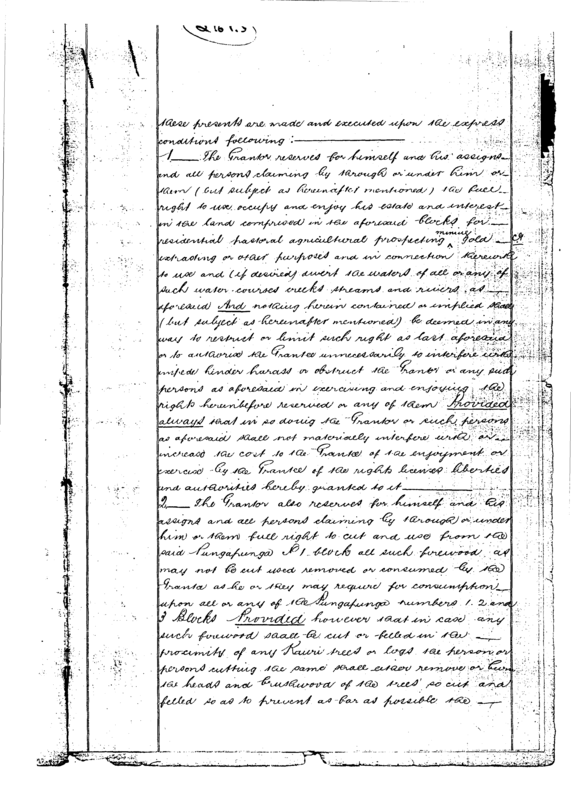 these presents are made and executed upon the express
conditions following :—
1 The Grantor reserves for himself and his assigns
and all persons claiming by through or under him or
them ( but subject as hereinafter mentioned ) the full
right to use occupy and enjoy his estate and interest
in the land comprised in the aforesaid blocks for
residential pastoral agricultural prospecting mining gold
extracting or other purposes and in connection therewith
to use and ( if desired ) divert the waters of all or any of
such water-courses creeks streams and rivers as
aforesaid And nothing herein contained or implied shall
( but subject as hereinafter mentioned ) be deemed in any
way to restrict or limit such right as last aforesaid
or to authorise the Grantee unnecessarily to interfere with
impede hinder harass or obstruct the Grantor or any such
persons as aforesaid in exercising and enjoying the
rights hereinbefore reserved or any of them Provided
always that in so doing the Grantor or such persons
as aforesaid shall not materially interfere with or
increase the cost to the Grantee of the enjoyment or
exercise by the Grantee of the rights licenses liberties
and authorities hereby granted to it
2 The Grantor also reserves for himself and his
assigns and all persons claiming by through or under
him or them full right to cut and use from the
said Pungapunga No 1 block all such firewood as
may not be cut used removed or consumed by the
Grantee as he or they may require for consumption
upon all or any of the Pungapunga numbers 1. 2 and
3 Blocks Provided however that in case any
such firewood shall be cut or felled in the
proximity of any Kauri trees or logs the person or
persons cutting the same shall either remove or burn
the heads and brushwood of the trees so cut and
felled so as to prevent as far as possible the